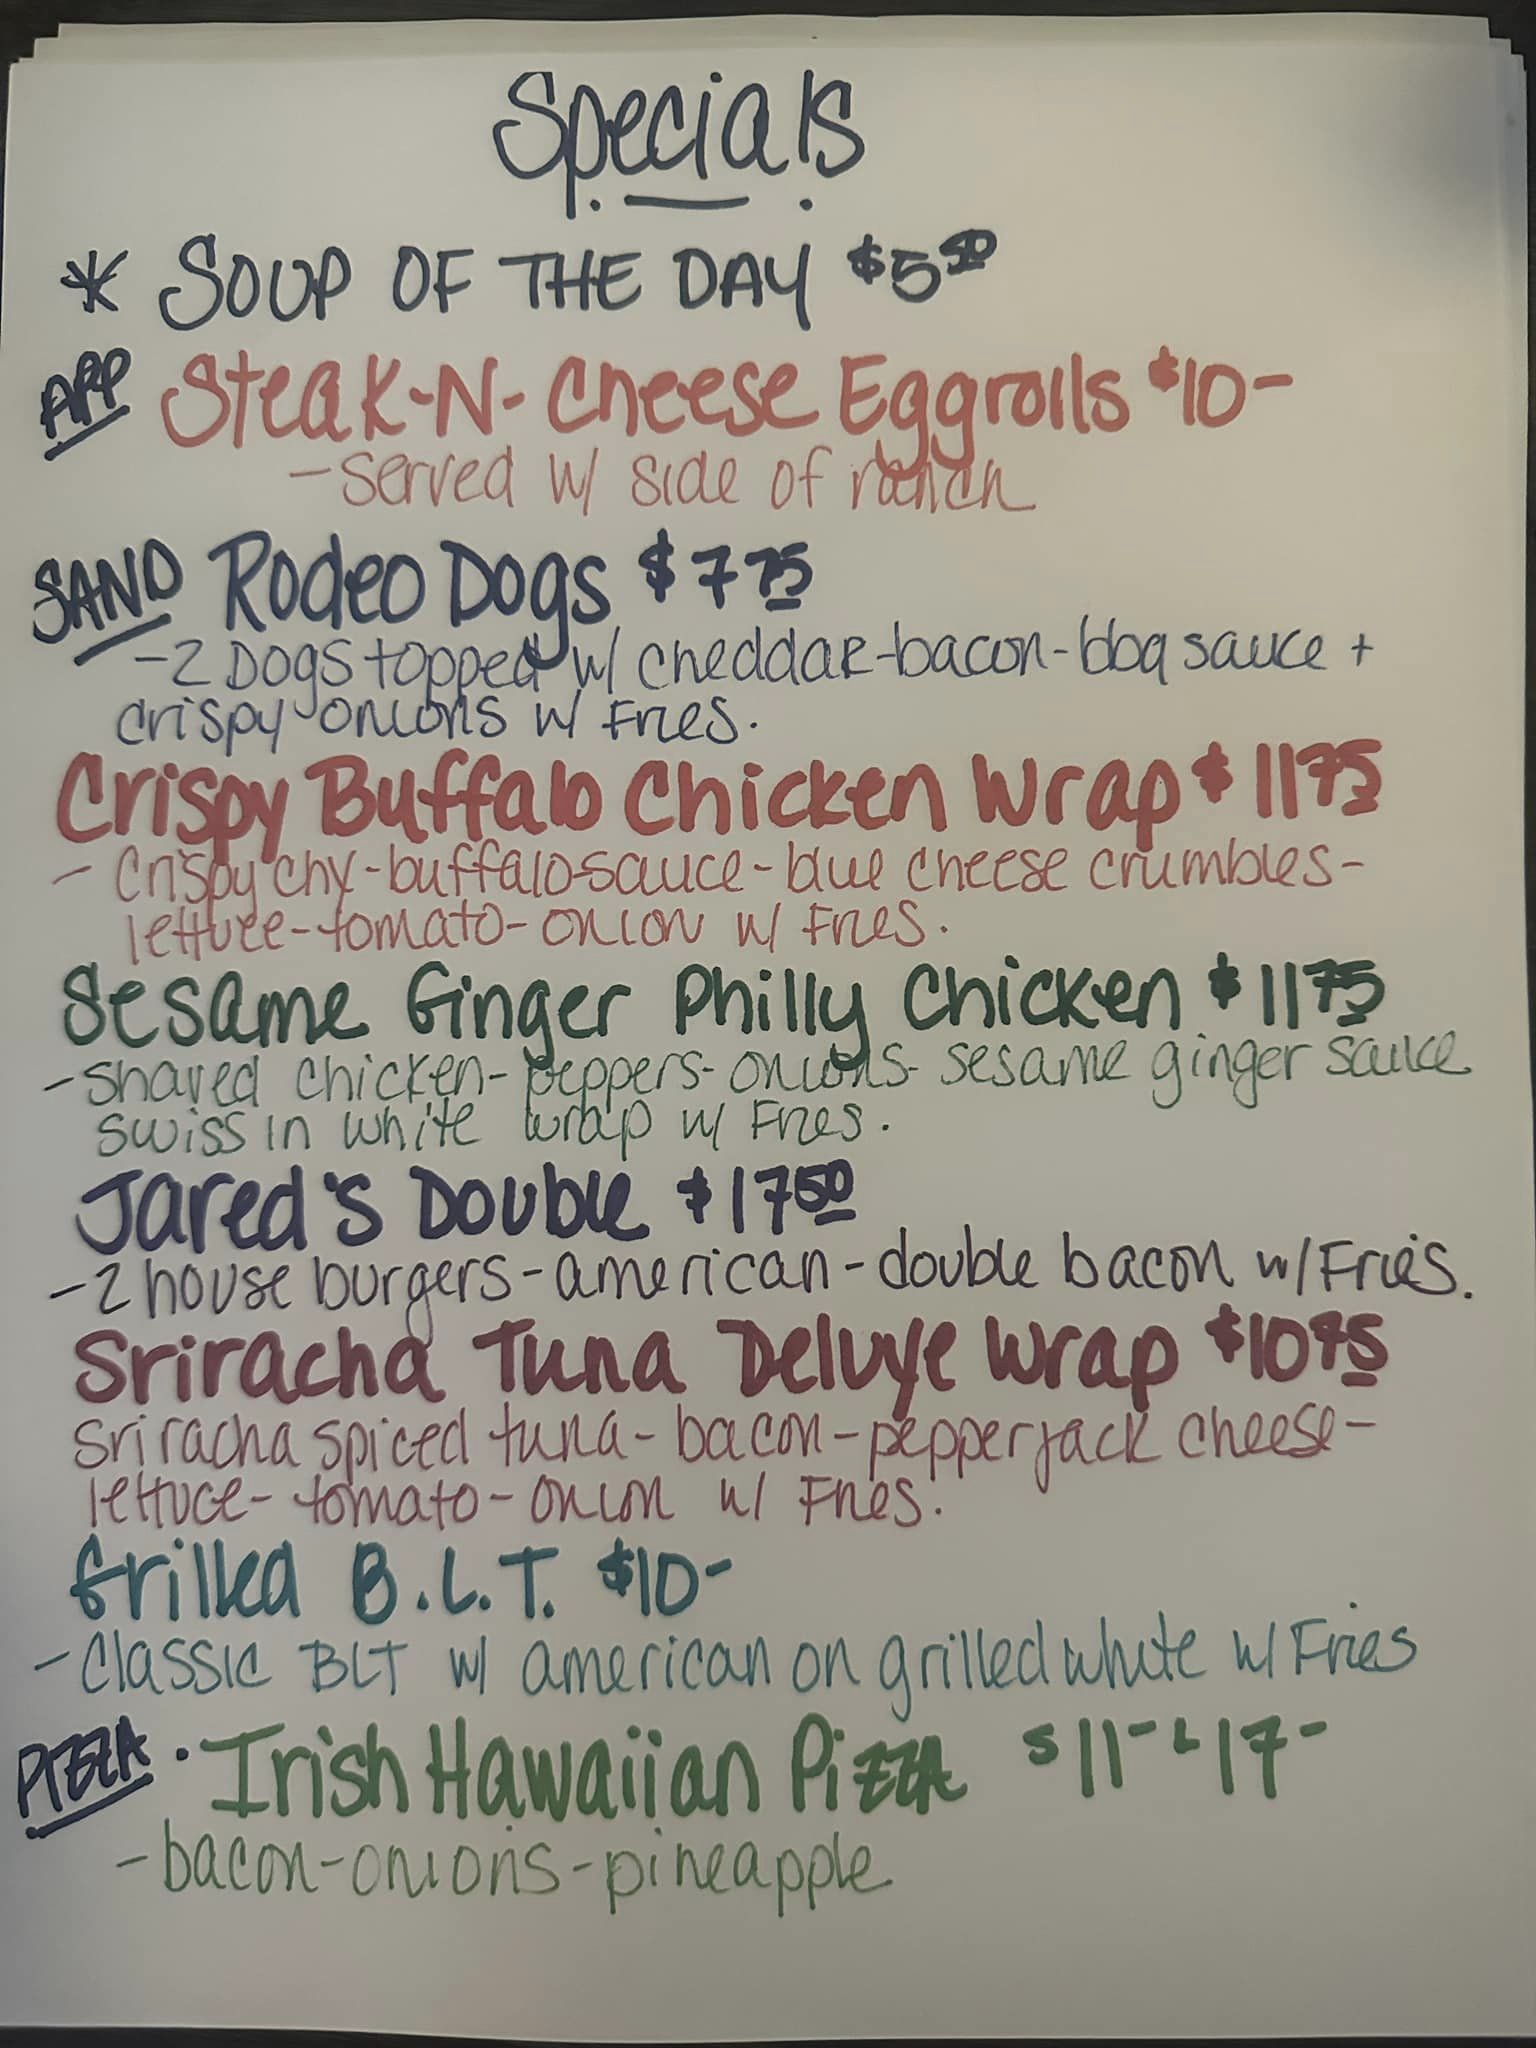 Specials
* SOUP OF THE DAY $5.50
APP Steak-N-Cheese Eggrolls $10-
- served w/ side of ranch
SAND Rodeo Dogs $7 75
- 2 Dogs topped w/ cheddar-bacon-bbq sauce +
crispy onions w/ Fries.
Crispy Buffalo Chicken Wrap $11 75
- crispy chx-buffalo sauce-blue cheese crumbles-
lettuce-tomato-onion w/ Fries.
Sesame Ginger Philly Chicken $11 75
- shaved chicken-peppers-onions-sesame ginger sauce
swiss in white wrap w/ Fries.
Jared's Double $17 50
- 2 house burgers-american-double bacon w/ Fries.
Sriracha Tuna Deluxe Wrap $10 75
Sriracha spiced tuna-bacon-pepperjack cheese-
lettuce-tomato-onion w/ Fries.
Grilled B.L.T. $10-
- Classic BLT w/ american on grilled white w/ Fries
PIZZA • Irish Hawaiian Pizza S 11- L 17-
- bacon-onions-pineapple